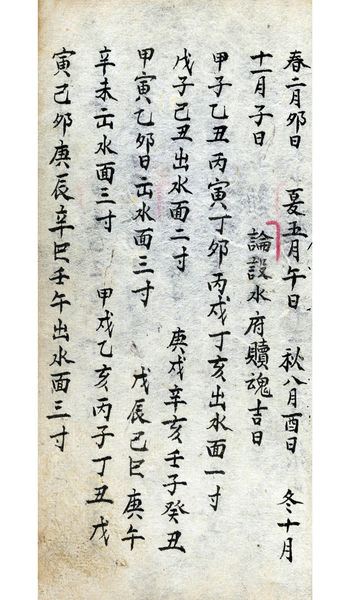 春二月卯日 夏五月午日 秋八月酉日 冬十月
十一月子日 論設水府贖魂吉日
甲子乙丑丙寅丁卯丙戌丁亥出水面一寸
戊子己丑出水面二寸 庚戌辛亥壬子癸丑
甲寅乙卯日出水面三寸 戊辰己巳庚午
辛未出水面三寸 甲戌乙亥丙子丁丑戊
寅己卯庚辰辛巳壬午出水面三寸